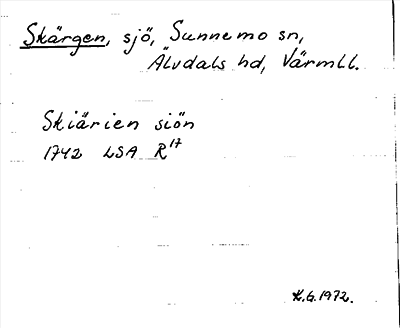 Skärgen, sjö, Sunnemo sn,
Älvdals hd, Värmll.
Skiärien siön
1742 LSA R17
K.G. 1972.